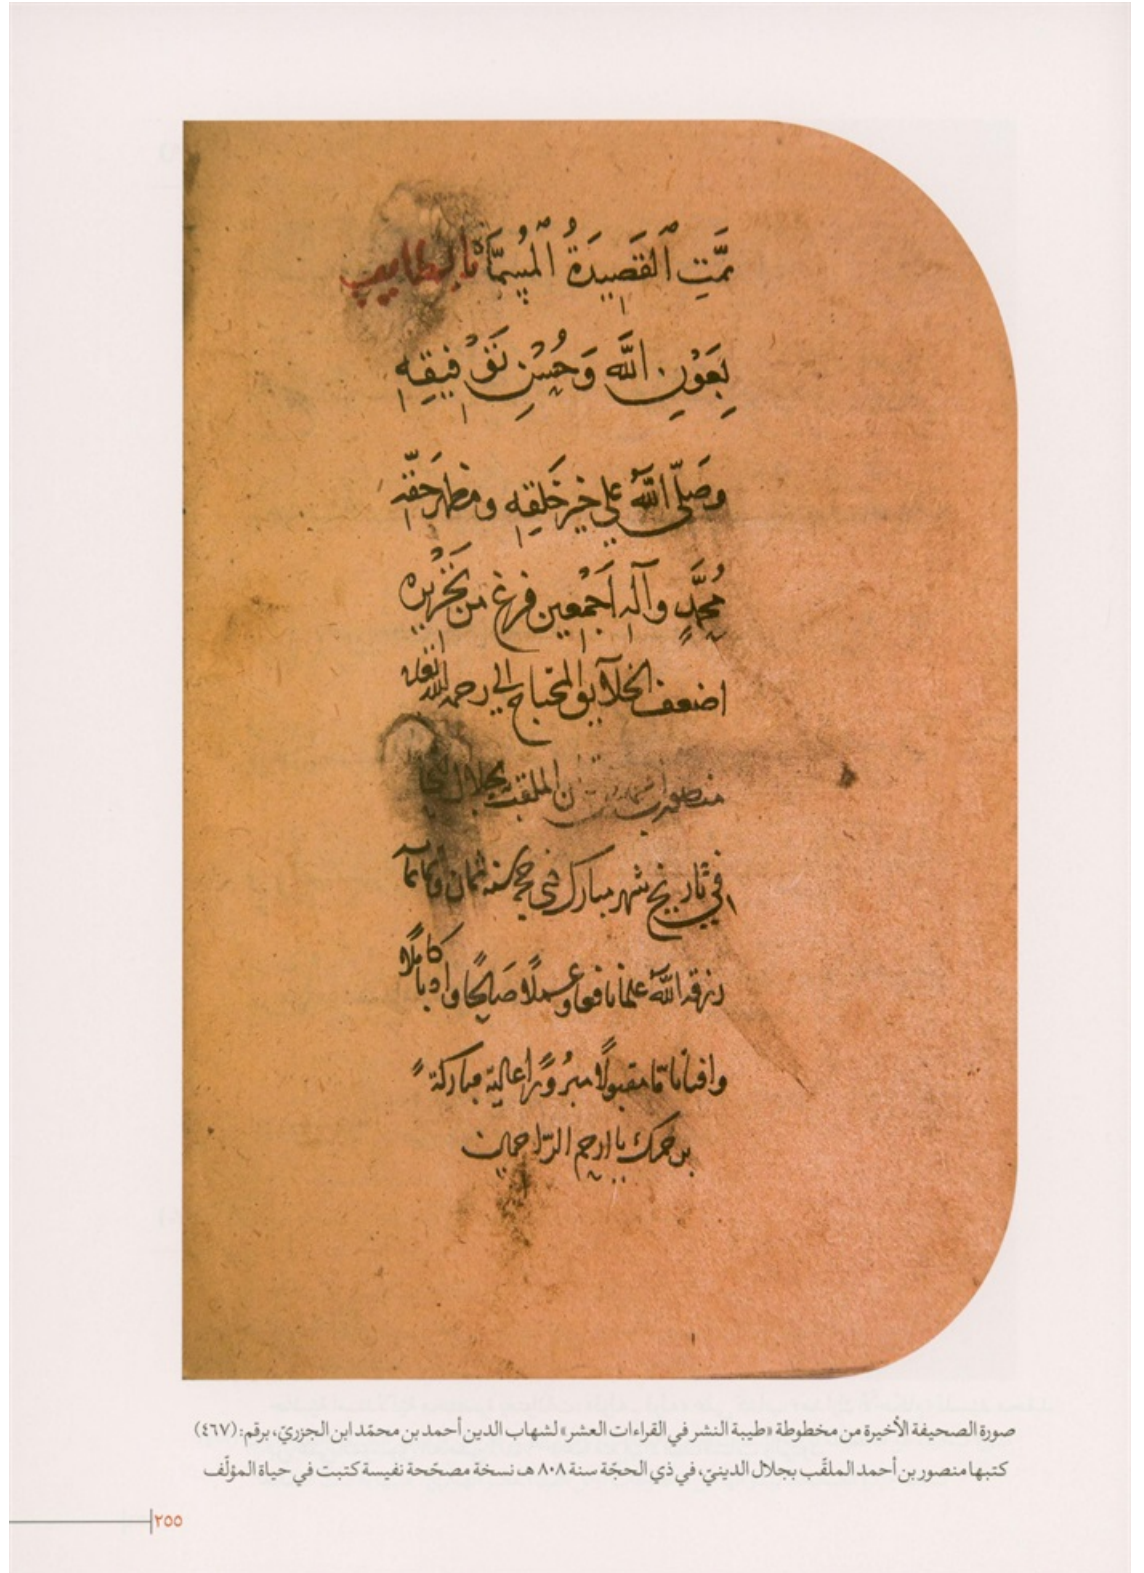 تمَّتِ ٱلقَصِيدَةُ ٱلمُسمَّاة بالطايبه
بِعَوْنِ اللَّه وَحُسْنِ تَوْفِيقِهِ
وَصَلَّى اللَّهُ على خير خَلقِهِ ومظهر حَقّهِ
مُحمَّدٍ وآله اَجْمعين فرغ من تَحْرْيره
اضعف الخلآيق المحتاج الى رحمه الله تعالى
منصور بن الملقب بجلال
في تاريخ شهر مبارك ذي حجه سنه ثمان وثمانمآ
رزقه اللَّه علمًا نافعا وعملًا صَالحًا وادبًا كاملًا
مقبولًا مبرُورًا عالية مباركة
برحمتك يا ارحم الرّاحمين
صورة الصحيفة الأخيرة من مخطوطة «طيبة النشر في القراءات العشر» لشهاب الدين أحمد بن محمّد ابن الجزريّ، برقم: (٤٦٧)
كتبها منصور بن أحمد الملقّب بجلال الدينيّ، في ذي الحجّة سنة ٨٠٨ هـ، نسخة مصحّحة نفيسة كتبت في حياة المؤلّف
٢٥٥